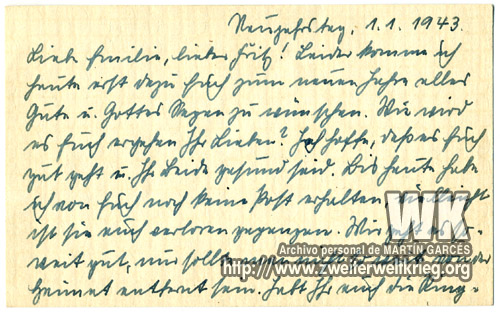 Neujahrstag, 1.1.1943.
Liebe Emilie, lieber Fritz! Leider komme ich
heute erst dazu Euch zum neuen Jahre alles
Gute u. Gottes Segen zu wünschen. Wie wird
es Euch ergehen Ihr Lieben? Ich hoffe, daß es Euch
gut geht u. Ihr beide gesund seid. Bis heute habe
ich von Euch noch keine Post erhalten, vielleicht
ist sie auch verloren gegangen. Mir geht es
weit gut, nur sollte man nicht so weit der
Heimat entfernt sein. Habt Ihr auch die
WK
Archivo personal de MARTIN GARCÉS
http://www.zweiterweltkrieg.org